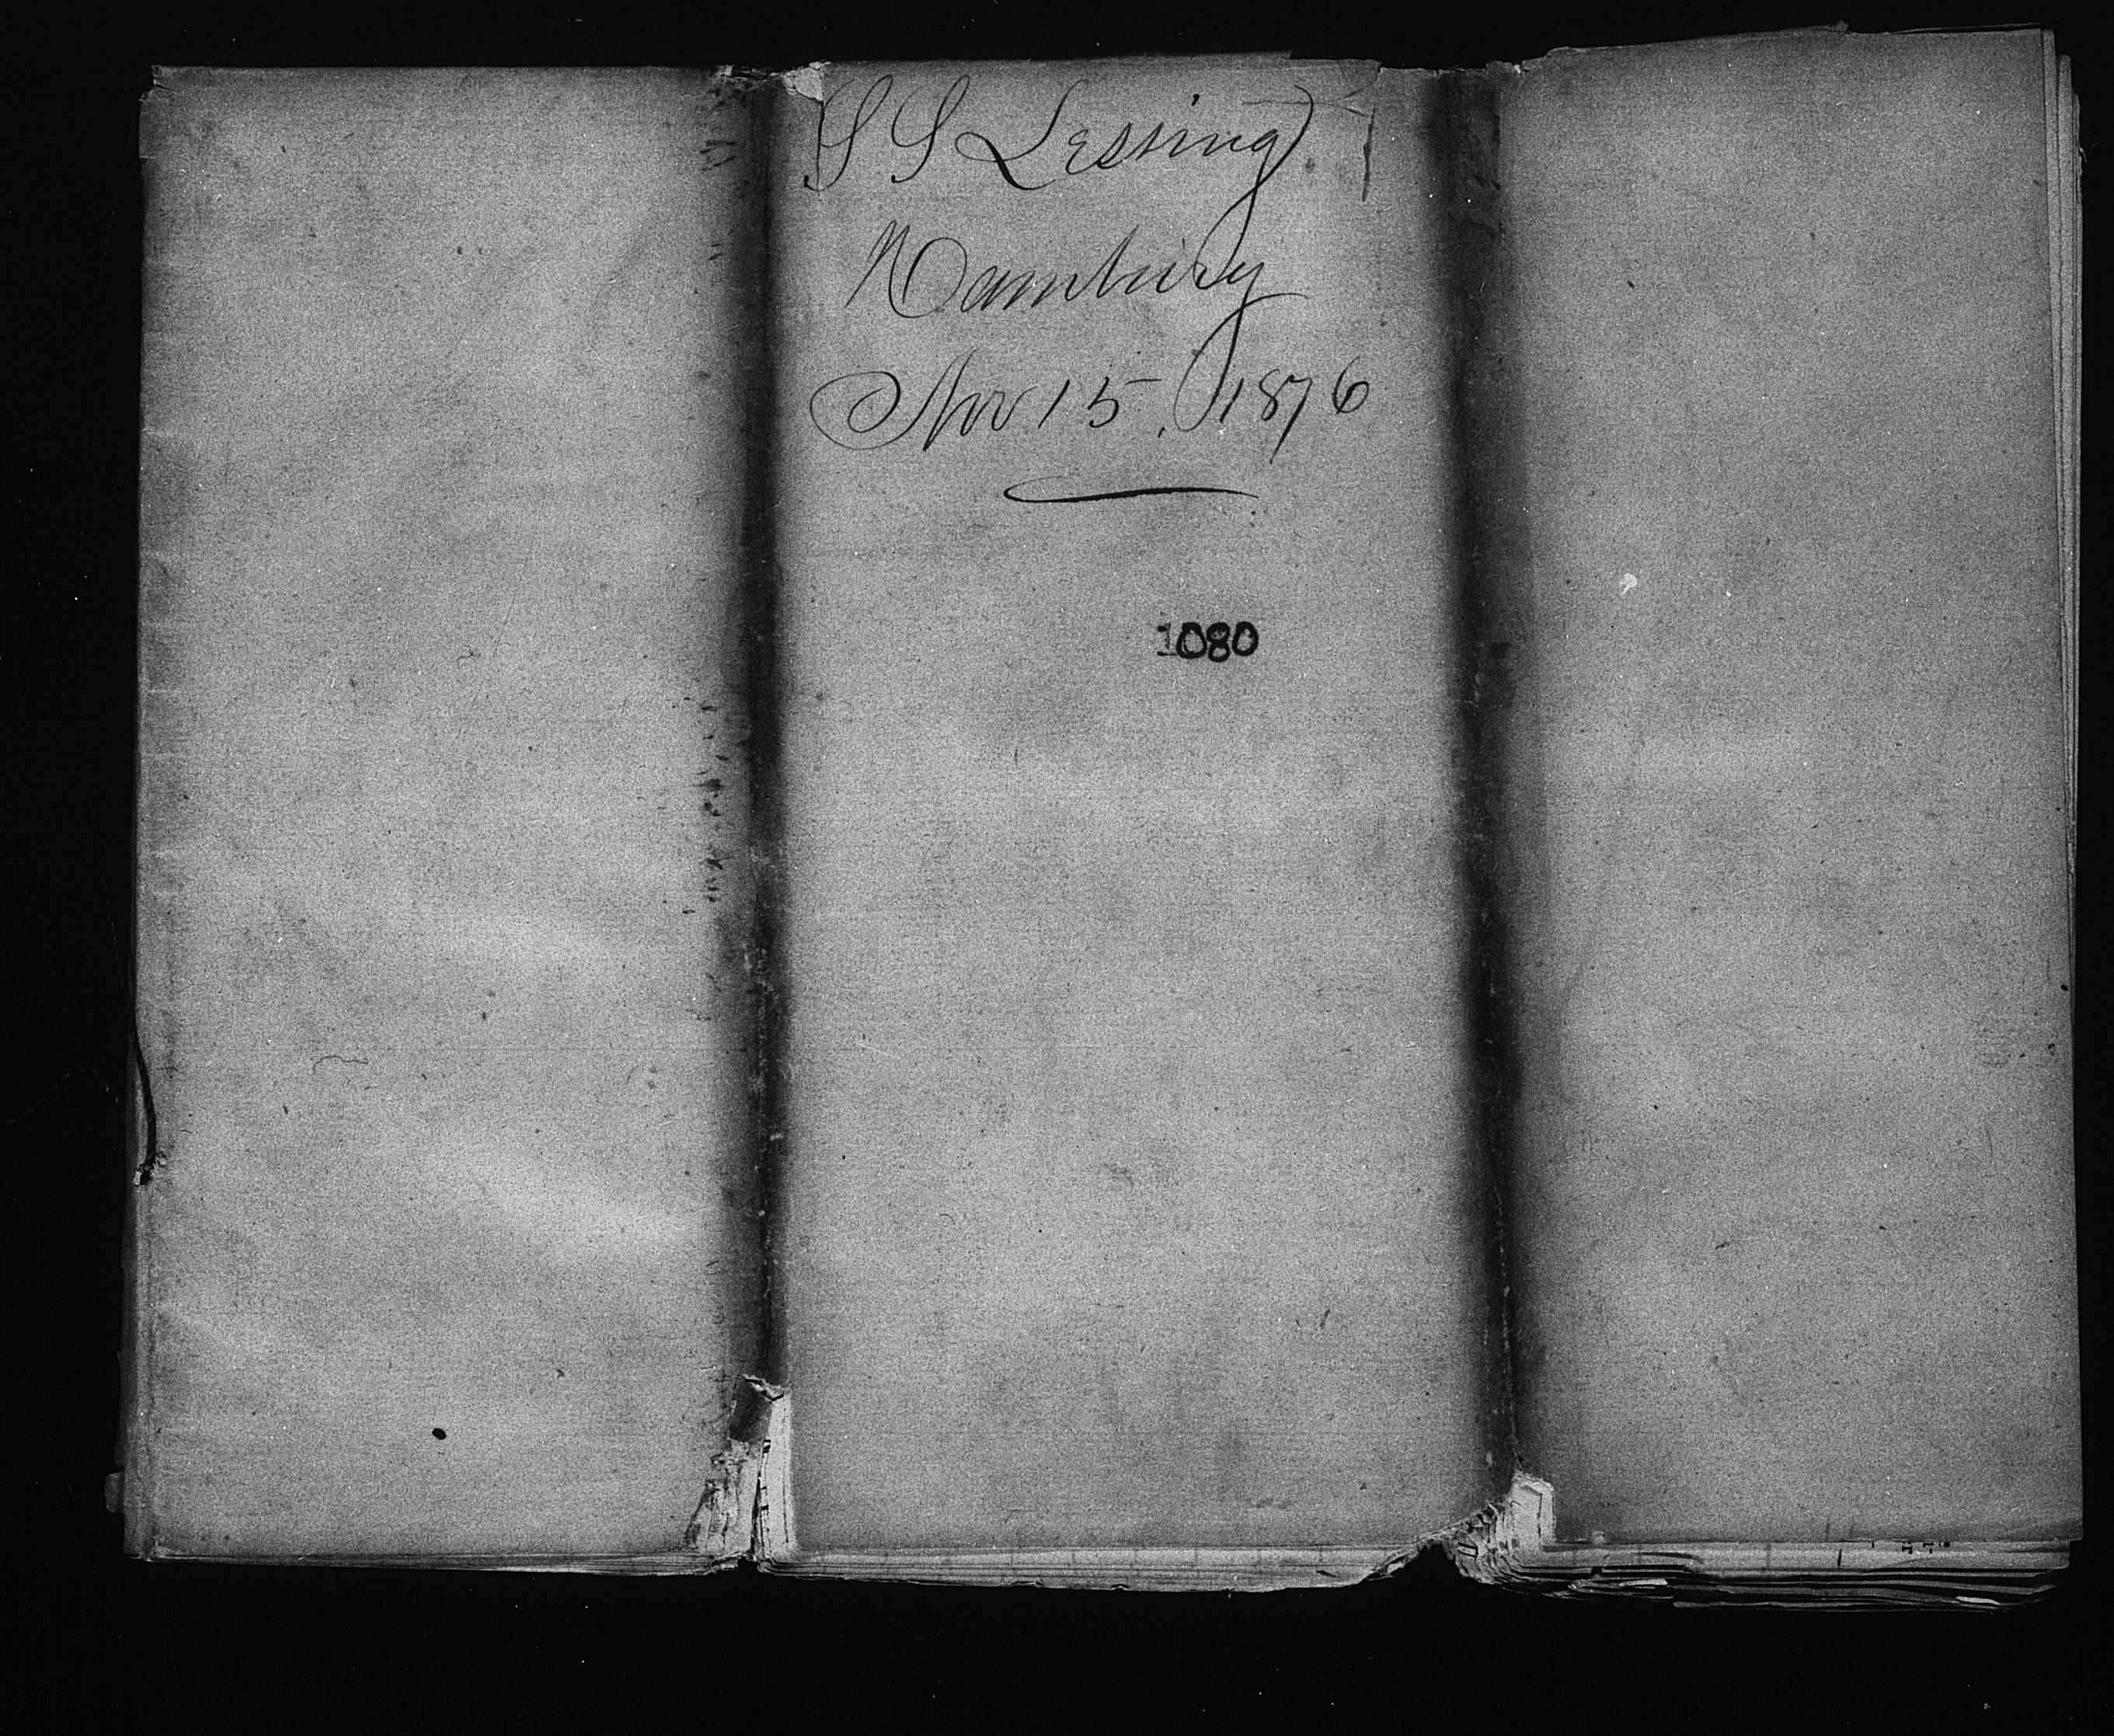 S S Lessing
Hamburg
Nov 15, 1876
1080